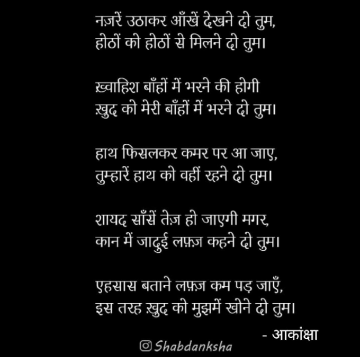 नज़रें उठाकर आँखें देखने दो तुम,
होठों को होठों से मिलने दो तुम।
ख़्वाहिश बाँहों में भरने की होगी
ख़ुद को मेरी बाँहों में भरने दो तुम।
हाथ फिसलकर कमर पर आ जाए,
तुम्हारें हाथ को वहीं रहने दो तुम।
शायद साँसें तेज़ हो जाएगी मगर,
कान में जादुई लफ़्ज़ कहने दो तुम।
एहसास बताने लफ़्ज़ कम पड़ जाएँ,
इस तरह ख़ुद को मुझमें खोने दो तुम।
- आकांक्षा
Shabdanksha